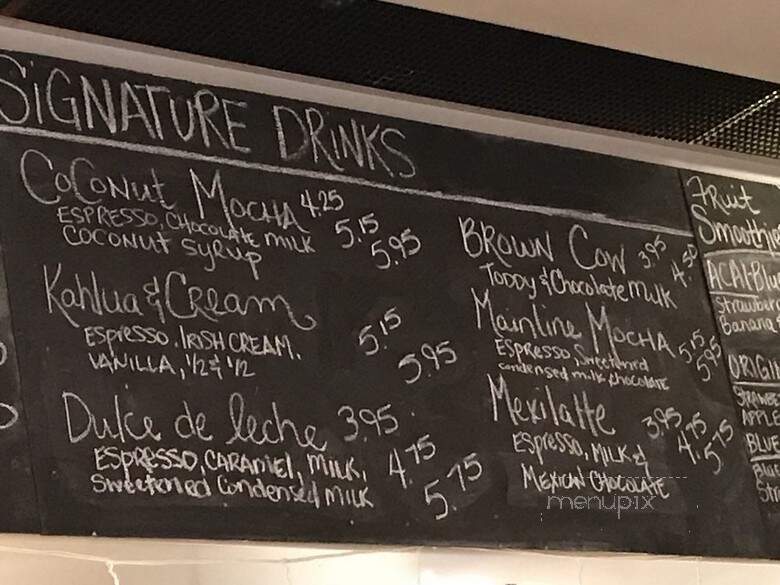 SIGNATURE DRINKS
COCONUT MOCHA 4.25
ESPRESSO, CHOCOLATE MILK 5.15
COCONUT SYRUP 5.95
Kahlua & Cream
ESPRESSO, IRISH CREAM, 5.15
VANILLA, 1/2 & 1/2 5.95
Dulce de leche 3.95
ESPRESSO, CARAMEL, MILK, 4.75
Sweetened Condensed MILK 5.75
BROWN COW 3.95
TODDY & Chocolate Milk 4.50
Mainline MOCHA 5.15
ESPRESSO, Sweetened 5.95
condensed milk, chocolate
Mexilatte 3.95
ESPRESSO, MILK & 4.75
MEXICAN CHOCOLATE 5.75
FRuit
Smoothie
ACAI-Blu
Strawber
Banana
ORIGI
STRAWB
APPL
BLUE
menupix